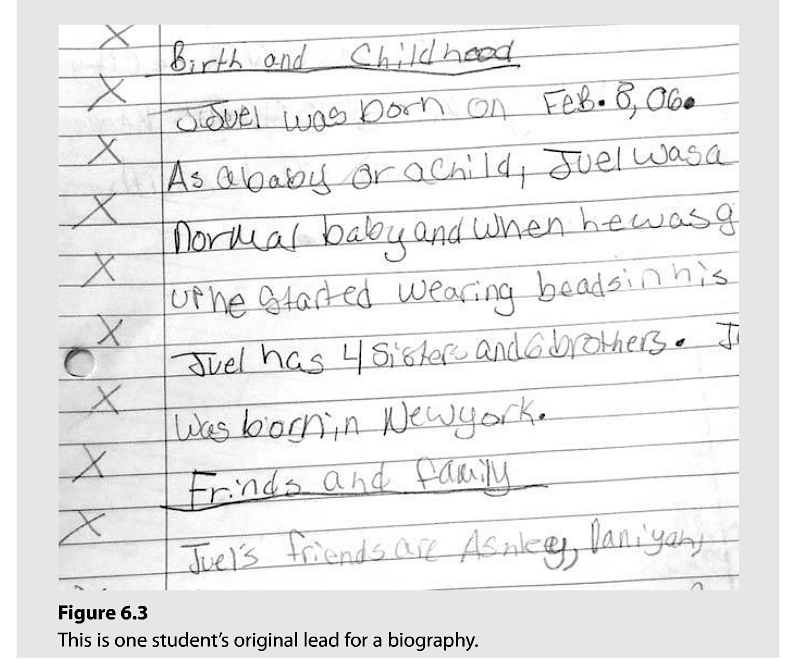 Birth and Childhood
Juel was born on Feb. 8, 06.
As a baby or a child, Juel was a
normal baby and when he was g
up he started wearing beads in his
Juel has 4 sisters and 6 brothers. J
Was born in New york.
Frinds and family
Juel's friends are Ashley, Daniyah,
Figure 6.3
This is one student's original lead for a biography.